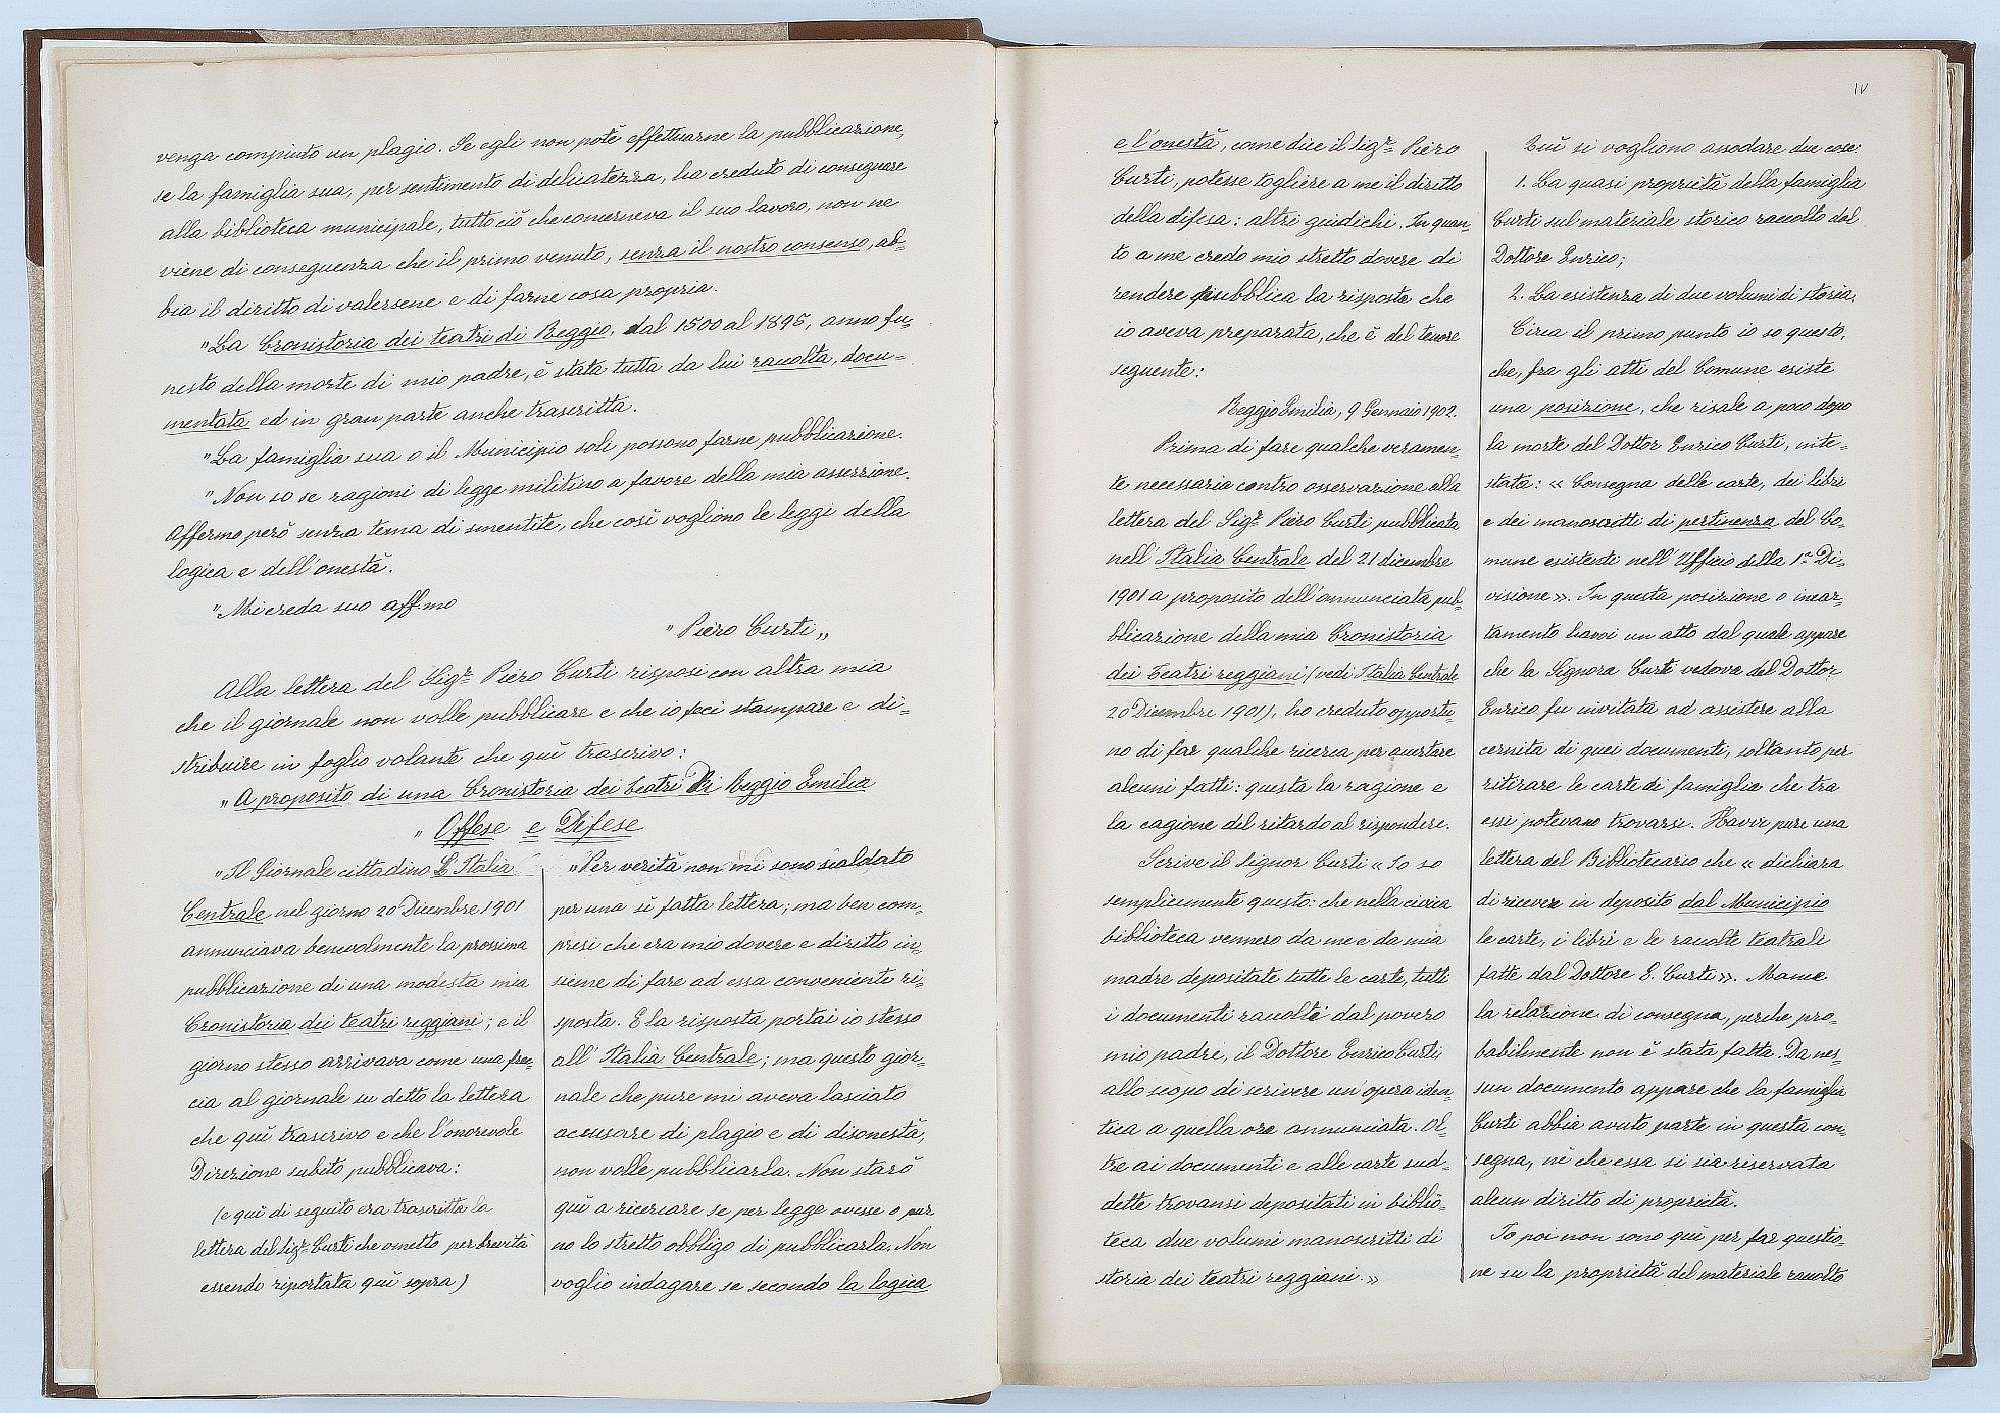 venga compiuto un plagio. Se egli non potè effettuarne la pubblicazione,
se la famiglia sua, per sentimento di delicatezza, ha creduto di consegnare
alla biblioteca municipale, tutto ciò che concerneva il suo lavoro, non ne
viene di conseguenza che il primo venuto, senza il nostro consenso, ab-
bia il diritto di valersene e di farne cosa propria.
"La Cronistoria dei teatri di Reggio, dal 1500 al 1895, anno fu-
nesto della morte di mio padre, è stata tutta da lui raccolta, docu-
mentata ed in gran parte anche trascritta.
"La famiglia sua o il Municipio soli possono farne pubblicazione.
"Non so se ragioni di legge militino a favore della mia asserzione.
Affermo però senza tema di smentite, che così vogliono le leggi della
logica e dell'onestà.
"Mi creda suo aff.mo
"Piero Curti„
Alla lettera del Sigr. Piero Curti risposi con altra mia
che il giornale non volle pubblicare e che io feci stampare e di-
stribuire in foglio volante che quì trascrivo:
"A proposito di una Cronistoria dei teatri Di Reggio Emilia
"Offese e Difese
"Il Giornale cittadino L'Italia
Centrale nel giorno 20 Dicembre 1901
annunciava benevolmente la prossima
pubblicazione di una modesta mia
Cronistoria dei teatri reggiani; e il
giorno stesso arrivava come una frec-
cia al giornale su detto la lettera
che quì trascrivo e che l'onorevole
Direzione subito pubblicava:
(e quì di seguito era trascritta la
lettera del Sigr. Curti che ometto per brevità
essendo riportata quì sopra)
"Per verità non mi sono scaldato
per una sì fatta lettera; ma ben com-
presi che era mio dovere e diritto in-
sieme di fare ad essa conveniente ri-
sposta. E la risposta portai io stesso
all'Italia Centrale; ma questo gior-
nale che pure mi aveva lasciato
accusare di plagio e di disonestà,
non volle pubblicarla. Non starò
quì a ricercare se per legge avesse o pur
no lo stretto obbligo di pubblicarla. Non
voglio indagare se secondo la logica
IV
e l'onestà, come dice il Sigr. Piero
Curti, potesse togliere a me il diritto
della difesa: altri giudichi. In quan-
to a me credo mio stretto dovere di
rendere pubblica la risposta che
io aveva preparata, che è del tenore
seguente:
Reggio Emilia, 9 Gennaio 1902.
Prima di fare qualche veramen-
te necessaria contro osservazione alla
lettera del Sigr. Piero Curti pubblicata
nell'Italia Centrale del 21 dicembre
1901 a proposito dell'annunciata pub-
blicazione della mia Cronistoria
dei Teatri reggiani (vedi Italia Centrale
20 Dicembre 1901), ho creduto opportu-
no di far qualche ricerca per accertare
alcuni fatti: questa la ragione e
la cagione del ritardo al rispondere.
Scrive il Signor Curti «Io so
semplicemente questo: che nella civica
biblioteca vennero da me e da mia
madre depositate tutte le carte, tutti
i documenti raccolti dal povero
mio padre, il Dottore Enrico Curti
allo scopo di scrivere un'opera iden-
tica a quella ora annunciata. Ol-
tre ai documenti e alle carte sud-
dette trovansi depositati in biblio-
teca due volumi manoscritti di
storia dei teatri reggiani.»
Quì si vogliono assodare due cose:
1. La quasi proprietà della famiglia
Curti sul materiale storico raccolto dal
Dottore Enrico;
2. La esistenza di due volumi di storia.
Circa il primo punto io so questo,
che, fra gli atti del Comune esiste
una posizione, che risale a poco dopo
la morte del Dottor Enrico Curti, inte-
stata: «Consegna delle carte, dei libri
e dei manoscritti di pertinenza del Co-
mune esistenti nell'Ufficio della 1.a Di-
visione». In questa posizione o incar-
tamento havvi un atto dal quale appare
che la Signora Curti vedova del Dottor
Enrico fu invitata ad assistere alla
cernita di quei documenti, soltanto per
ritirare le carte di famiglia che tra
essi potevano trovarsi. Havvi pure una
lettera del Bibliotecario che «dichiara
di ricever in deposito dal Municipio
le carte, i libri e le raccolte teatrali
fatte dal Dottore E. Curti». Manca
la relazione di consegna, perchè pro-
babilmente non è stata fatta. Da nes-
sun documento appare che la famiglia
Curti abbia avuto parte in questa con-
segna, nè che essa si sia riservata
alcun diritto di proprietà.
Io poi non sono quì per far questio-
ne su la proprietà del materiale raccolto